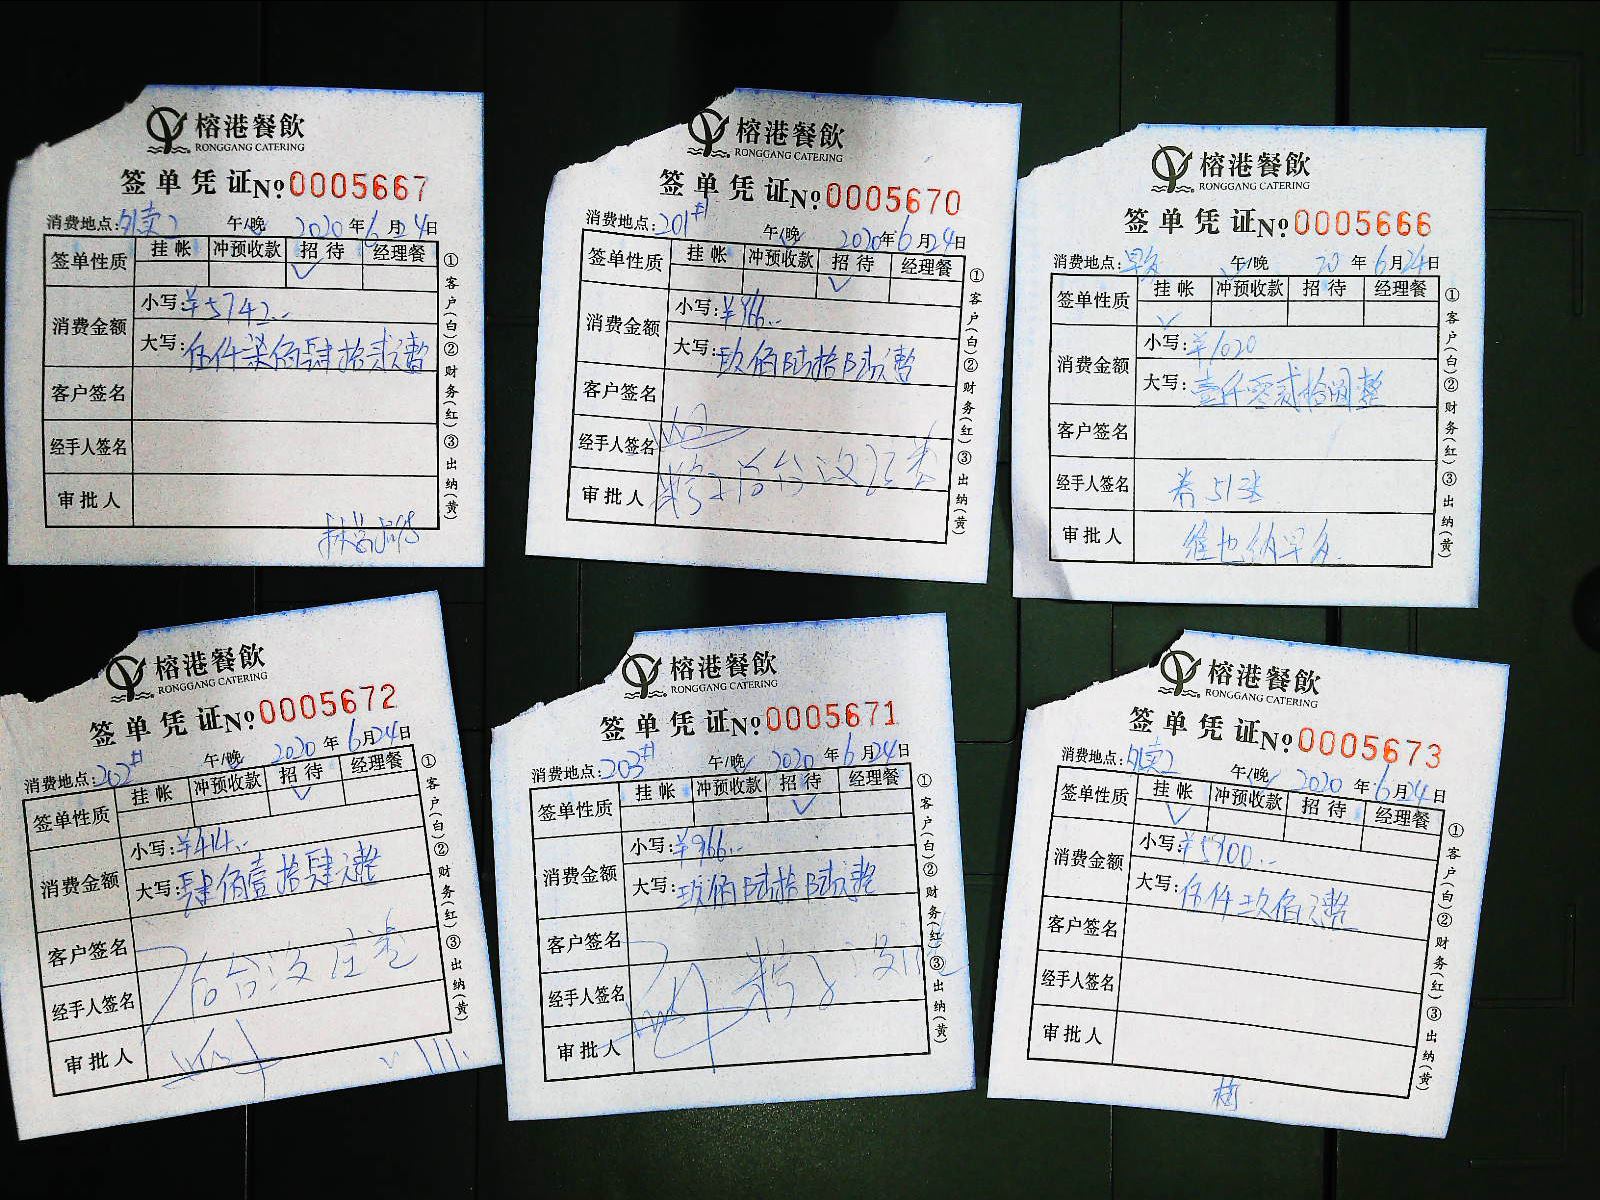 榕港餐飲
RONGGANG CATERING
签单凭证 No 0005667
消费地点:外卖2 午/晚 2020年6月24日
签单性质 挂帐 冲预收款 招待 经理餐
消费金额 小写:¥5742..
大写:伍仟柒佰肆拾贰元整
客户签名
经手人签名
审批人
①客户(白)②财务(红)③出纳(黄)
榕港餐飲
RONGGANG CATERING
签单凭证 No 0005670
消费地点:201# 午/晚 2020年6月24日
签单性质 挂帐 冲预收款 招待 经理餐
消费金额 小写:¥966..
大写:玖佰陆拾陆元整
客户签名
经手人签名
审批人
①客户(白)②财务(红)③出纳(黄)
榕港餐飲
RONGGANG CATERING
签单凭证 No 0005666
消费地点:早餐 午/晚 20年6月24日
签单性质 挂帐 冲预收款 招待 经理餐
消费金额 小写:¥1020
大写:壹仟零贰拾圆整
客户签名
经手人签名 券51张
审批人 维也纳早餐
①客户(白)②财务(红)③出纳(黄)
榕港餐飲
RONGGANG CATERING
签单凭证 No 0005672
消费地点:202# 午/晚 2020年6月24日
签单性质 挂帐 冲预收款 招待 经理餐
消费金额 小写:¥414..
大写:肆佰壹拾肆元整
客户签名
经手人签名
审批人
①客户(白)②财务(红)③出纳(黄)
榕港餐飲
RONGGANG CATERING
签单凭证 No 0005671
消费地点:203# 午/晚 2020年6月24日
签单性质 挂帐 冲预收款 招待 经理餐
消费金额 小写:¥966..
大写:玖佰陆拾陆元整
客户签名
经手人签名
审批人
①客户(白)②财务(红)③出纳(黄)
榕港餐飲
RONGGANG CATERING
签单凭证 No 0005673
消费地点:外卖2 午/晚 2020年6月24日
签单性质 挂帐 冲预收款 招待 经理餐
消费金额 小写:¥5900..
大写:伍仟玖佰元整
客户签名
经手人签名
审批人
①客户(白)②财务(红)③出纳(黄)